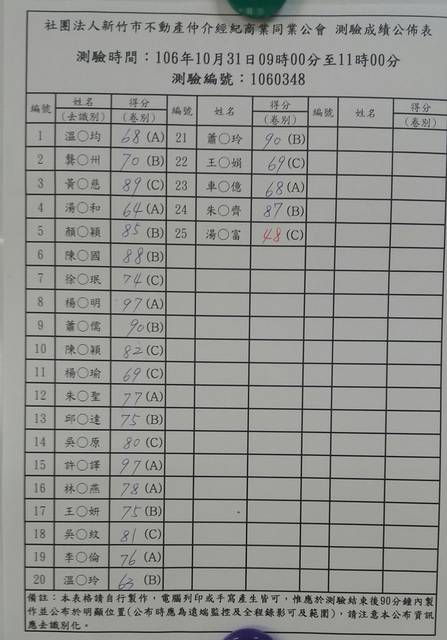 社團法人新竹市不動產仲介經紀商業同業公會 測驗成績公佈表
測驗時間：106年10月31日09時00分至11時00分
測驗編號：1060348
編號 姓名(去識別) 得分(卷別) 編號 姓名(去識別) 得分(卷別) 編號 姓名(去識別) 得分(卷別)
1 溫○均 68(A) 21 蕭○玲 90(B)
2 龔○州 70(B) 22 王○娟 69(C)
3 黃○慈 89(C) 23 車○億 68(A)
4 湯○和 64(A) 24 朱○齊 87(B)
5 顏○穎 85(B) 25 湯○富 48(C)
6 陳○國 88(B)
7 徐○珉 74(C)
8 楊○明 97(A)
9 蕭○儒 90(B)
10 陳○穎 82(C)
11 楊○瑜 69(C)
12 朱○聖 77(A)
13 邱○達 75(B)
14 吳○原 80(C)
15 許○譯 97(A)
16 林○燕 78(A)
17 王○妍 75(B)
18 吳○紋 81(C)
19 李○倫 76(A)
20 溫○玲 63(B)
備註：本表格請自行製作，電腦列印或手寫產生皆可，惟應於測驗結束後90分鐘內製
作並公布於明顯位置(公布時應為遠端監控及全程錄影可及範圍)，請注意本公布資訊
應去識別化。